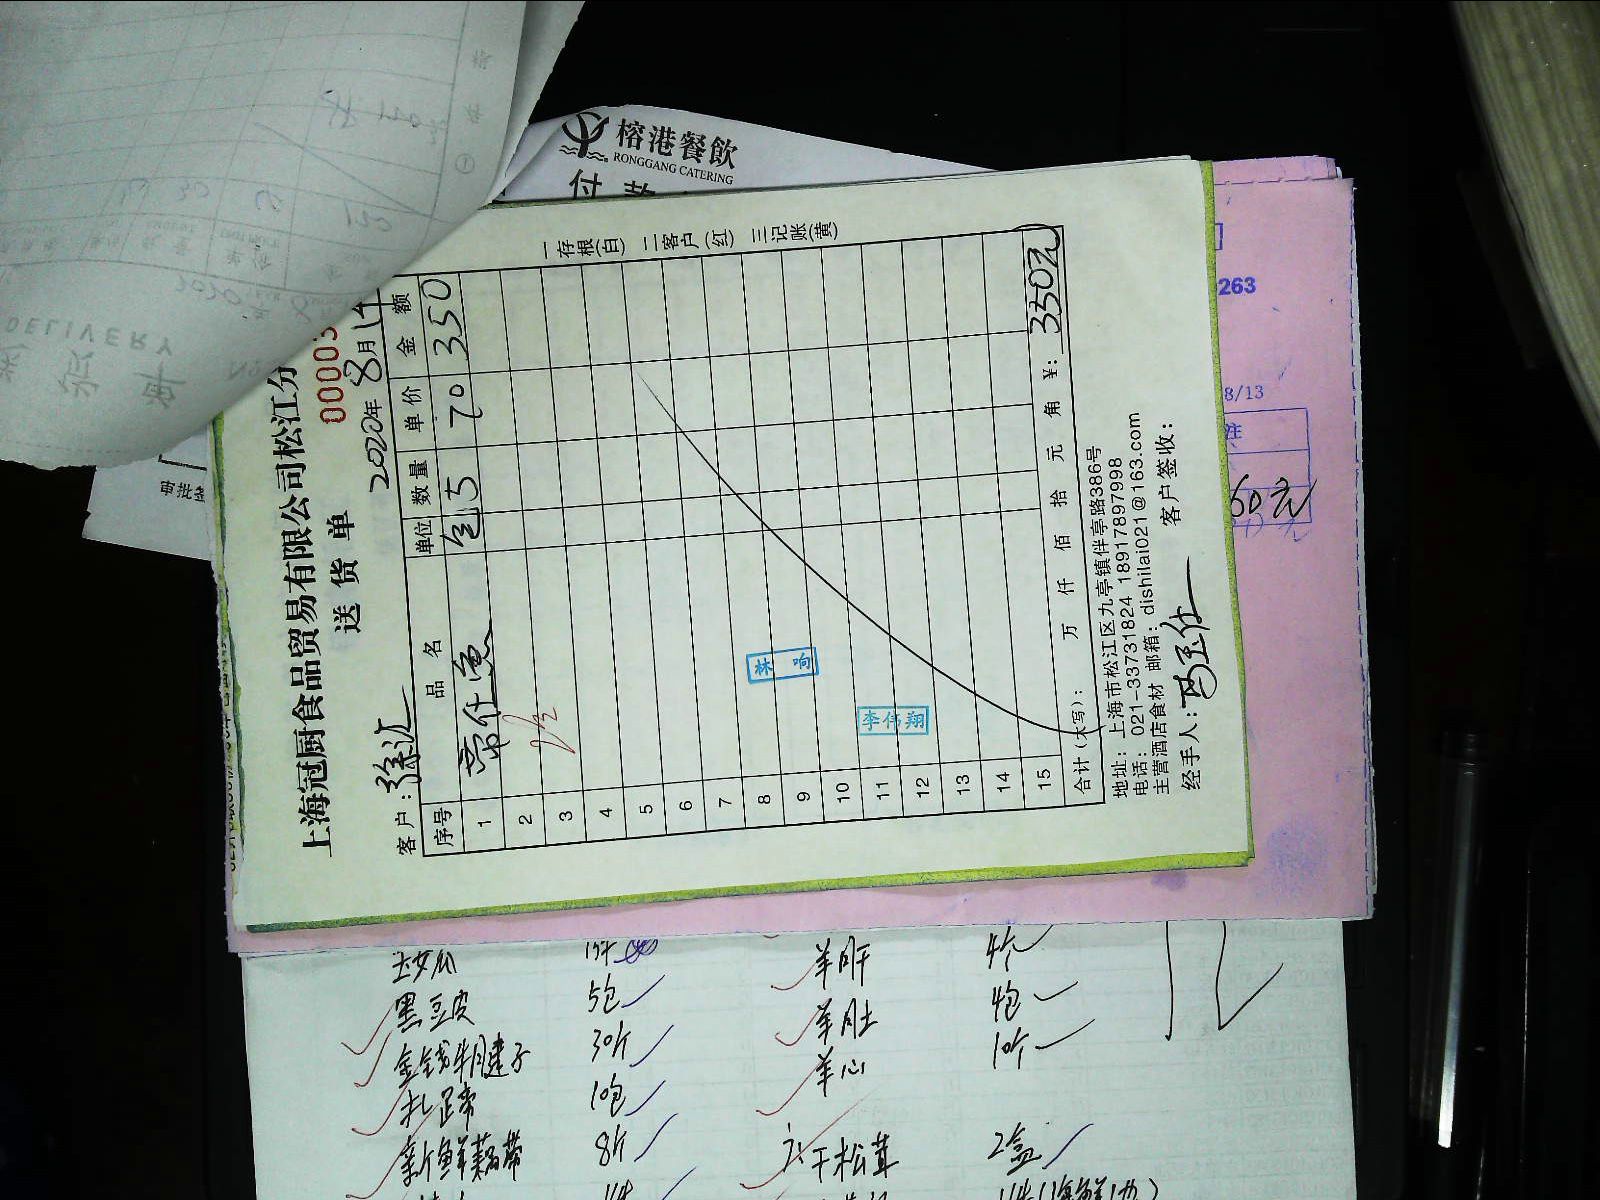 榕港餐飲
RONGGANG CATERING
付 款
上海冠厨食品贸易有限公司松江分
送 货 单
00003
客户: 徐汇
2020年 8月14
序号 品 名 单位 数量 单价 金 额
1 常仕魚 包 5 70 350
2
3
4
5
6
7
8
9
10
11
12
13
14
15
林 响
李伟翔
合计(大写): 万 仟 佰 拾 元 角 ¥: 350元
地址: 上海市松江区九亭镇伴亭路386号
电话: 021-33731824 18917897998
主营酒店食材 邮箱: dishilai021@163.com
经手人: 客户签收:
一存根(白) 二客户(红) 三记账(黄)
263
8/13
注
60元
审批
DELIVERY
黑豆皮 5包
金钱牛腱子 30斤
10包
新鲜藕带 8斤
羊肝 4个
羊肚 4包
羊心 10个
干松茸 2盒